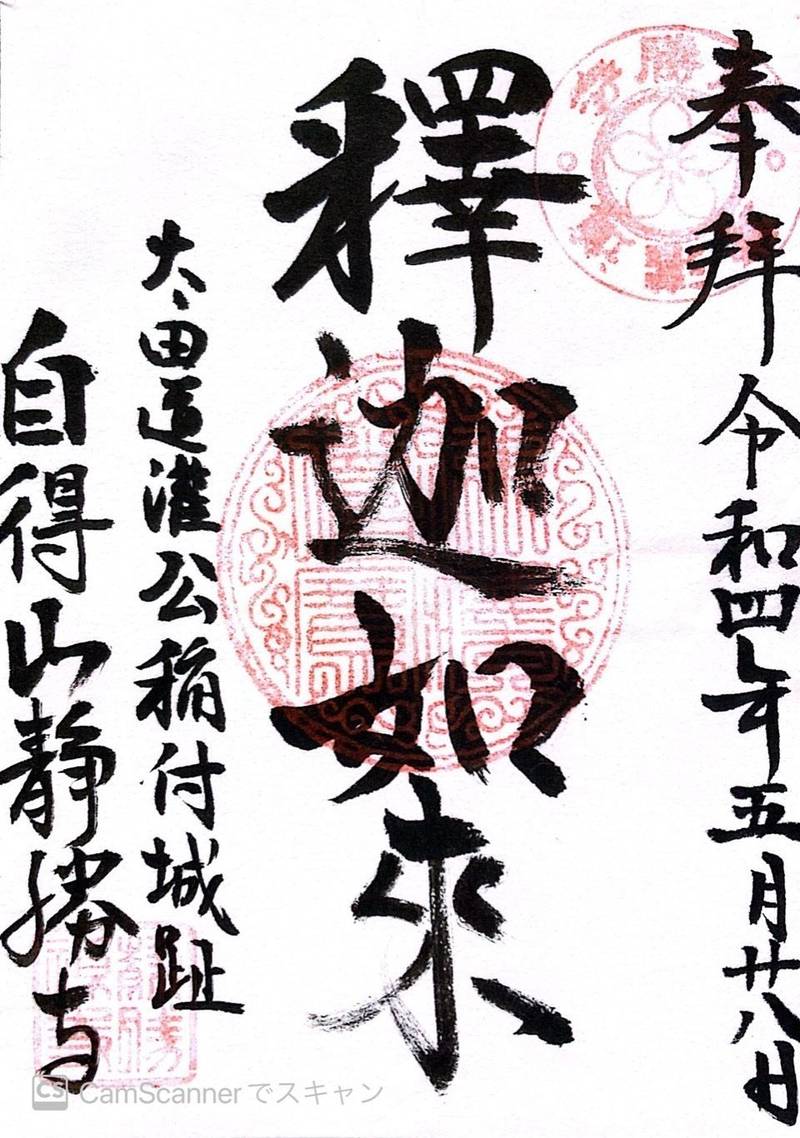 奉拜 令和四年五月廿八日
釋迦如來
太田道灌公稲付城趾
自得山静勝寺
CamScannerでスキャン